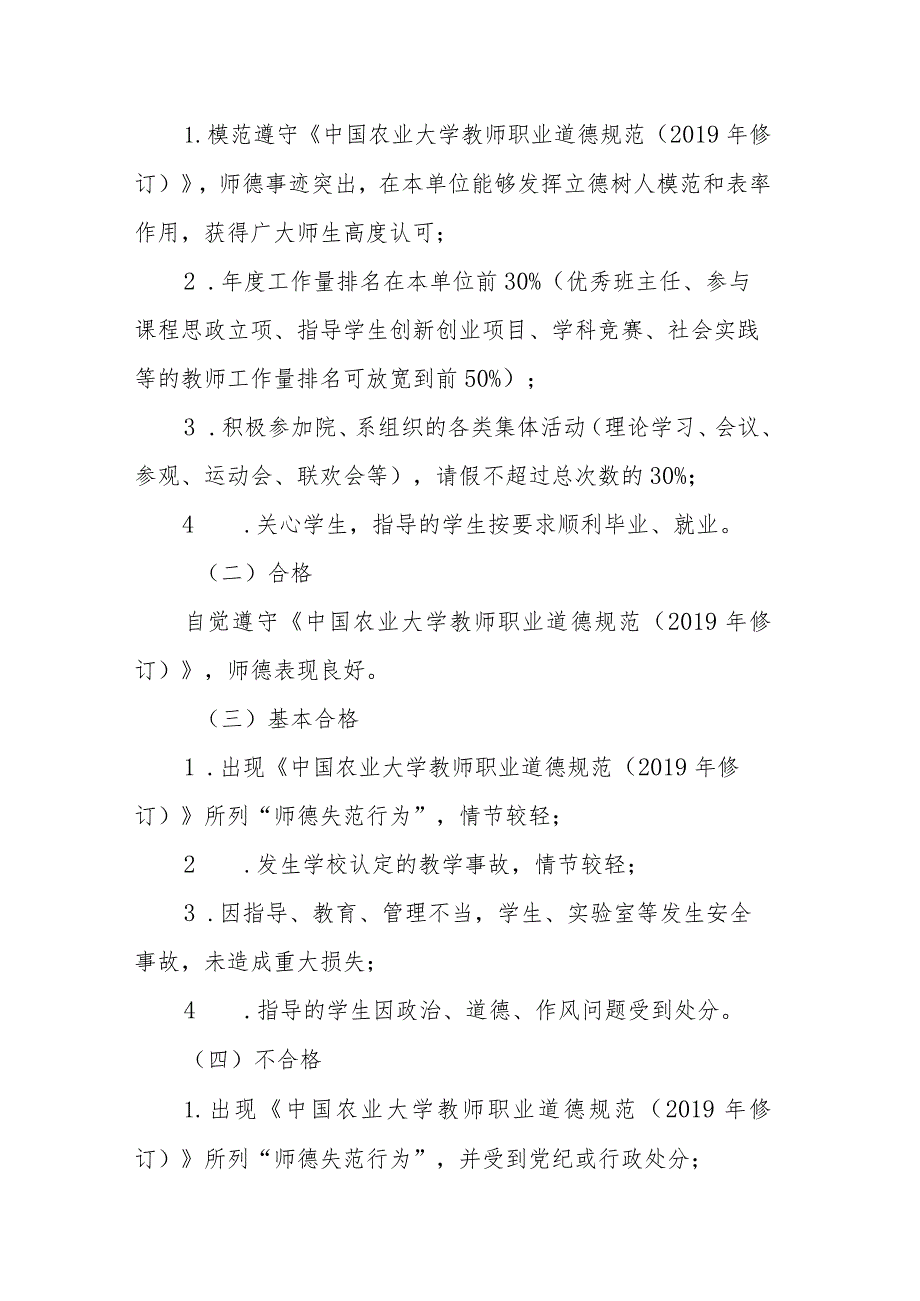 1.模范遵守《中国农业大学教师职业道德规范（2019 年修
订）》，师德事迹突出，在本单位能够发挥立德树人模范和表率
作用，获得广大师生高度认可；
2 .年度工作量排名在本单位前 30%（优秀班主任、参与
课程思政立项、指导学生创新创业项目、学科竞赛、社会实践
等的教师工作量排名可放宽到前 50%）；
3 .积极参加院、系组织的各类集体活动（理论学习、会议、
参观、运动会、联欢会等），请假不超过总次数的 30%；
4 .关心学生，指导的学生按要求顺利毕业、就业。
（二）合格
自觉遵守《中国农业大学教师职业道德规范（2019 年修
订）》，师德表现良好。
（三）基本合格
1 .出现《中国农业大学教师职业道德规范（2019 年修
订）》所列“师德失范行为”，情节较轻；
2 .发生学校认定的教学事故，情节较轻；
3 .因指导、教育、管理不当，学生、实验室等发生安全
事故，未造成重大损失；
4 .指导的学生因政治、道德、作风问题受到处分。
（四）不合格
1.出现《中国农业大学教师职业道德规范（2019 年修
订）》所列“师德失范行为”，并受到党纪或行政处分；